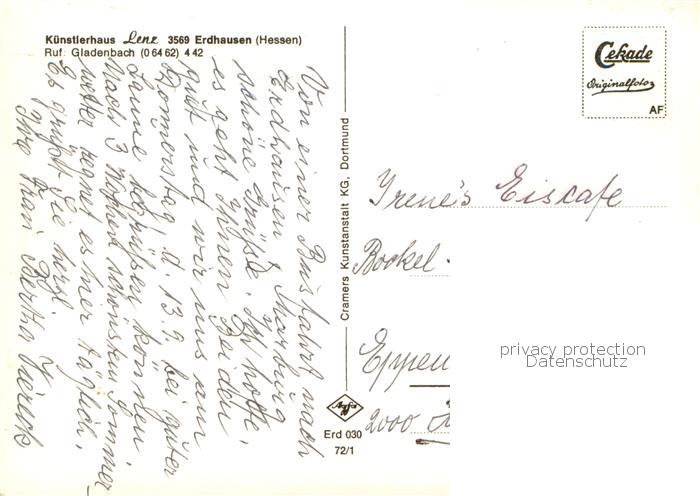 Künstlerhaus Lenz 3569 Erdhausen (Hessen)
Ruf: Gladenbach (0 64 62) 4 42
Von einer Busfahrt nach
Erdhausen / Marburg
schöne Grüße. Ich hoffe,
es geht Ihnen Beiden
gut und wir uns am
Donnerstag, d. 13.9. bei guter
Laune begrüßen können
Nach 3 Wochen schönstem Sommer-
wetter regnet es hier täglich.
Es grüßt Sie herzl.
Ihre Frau Bertha
Cramers Kunstanstalt KG, Dortmund
Agfa
Erd 030
72/1
Cekade
Originalfoto
AF
Irene's Eiscafe
Bockel
Eppen
2000
privacy protection
Datenschutz